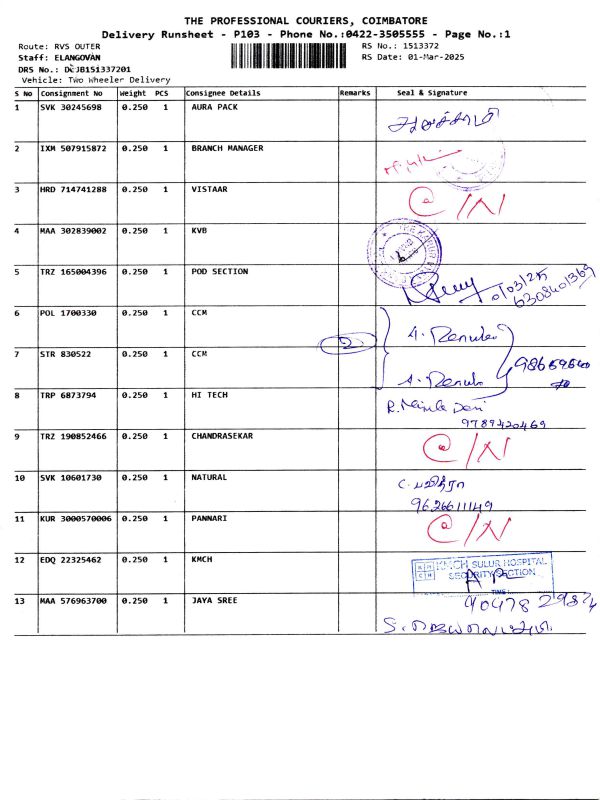 THE PROFESSIONAL COURIERS, COIMBATORE
Delivery Runsheet - P103 - Phone No.:0422-3505555 - Page No.:1
Route: RVS OUTER RS No.: 1513372
Staff: ELANGOVAN RS Date: 01-Mar-2025
DRS No.: DCJB151337201
Vehicle: Two Wheeler Delivery
S No Consignment No Weight PCS Consignee Details Remarks Seal & Signature
1 SVK 30245698 0.250 1 AURA PACK
2 IXM 507915872 0.250 1 BRANCH MANAGER
3 HRD 714741288 0.250 1 VISTAAR
4 MAA 302839002 0.250 1 KVB
5 TRZ 165004396 0.250 1 POD SECTION
01/03/25
6308401369
6 POL 1700330 0.250 1 CCM A. Renuka
2
7 STR 830522 0.250 1 CCM A. Renuka
8 TRP 6873794 0.250 1 HI TECH
9789420469
9 TRZ 190852466 0.250 1 CHANDRASEKAR
10 SVK 10601730 0.250 1 NATURAL C. பவித்ரா
9626611149
11 KUR 3000570006 0.250 1 PANNARI
12 EDQ 22325462 0.250 1 KMCH KMCH SULUR HOSPITAL
SECURITY SECTION
TIME:
13 MAA 576963700 0.250 1 JAYA SREE